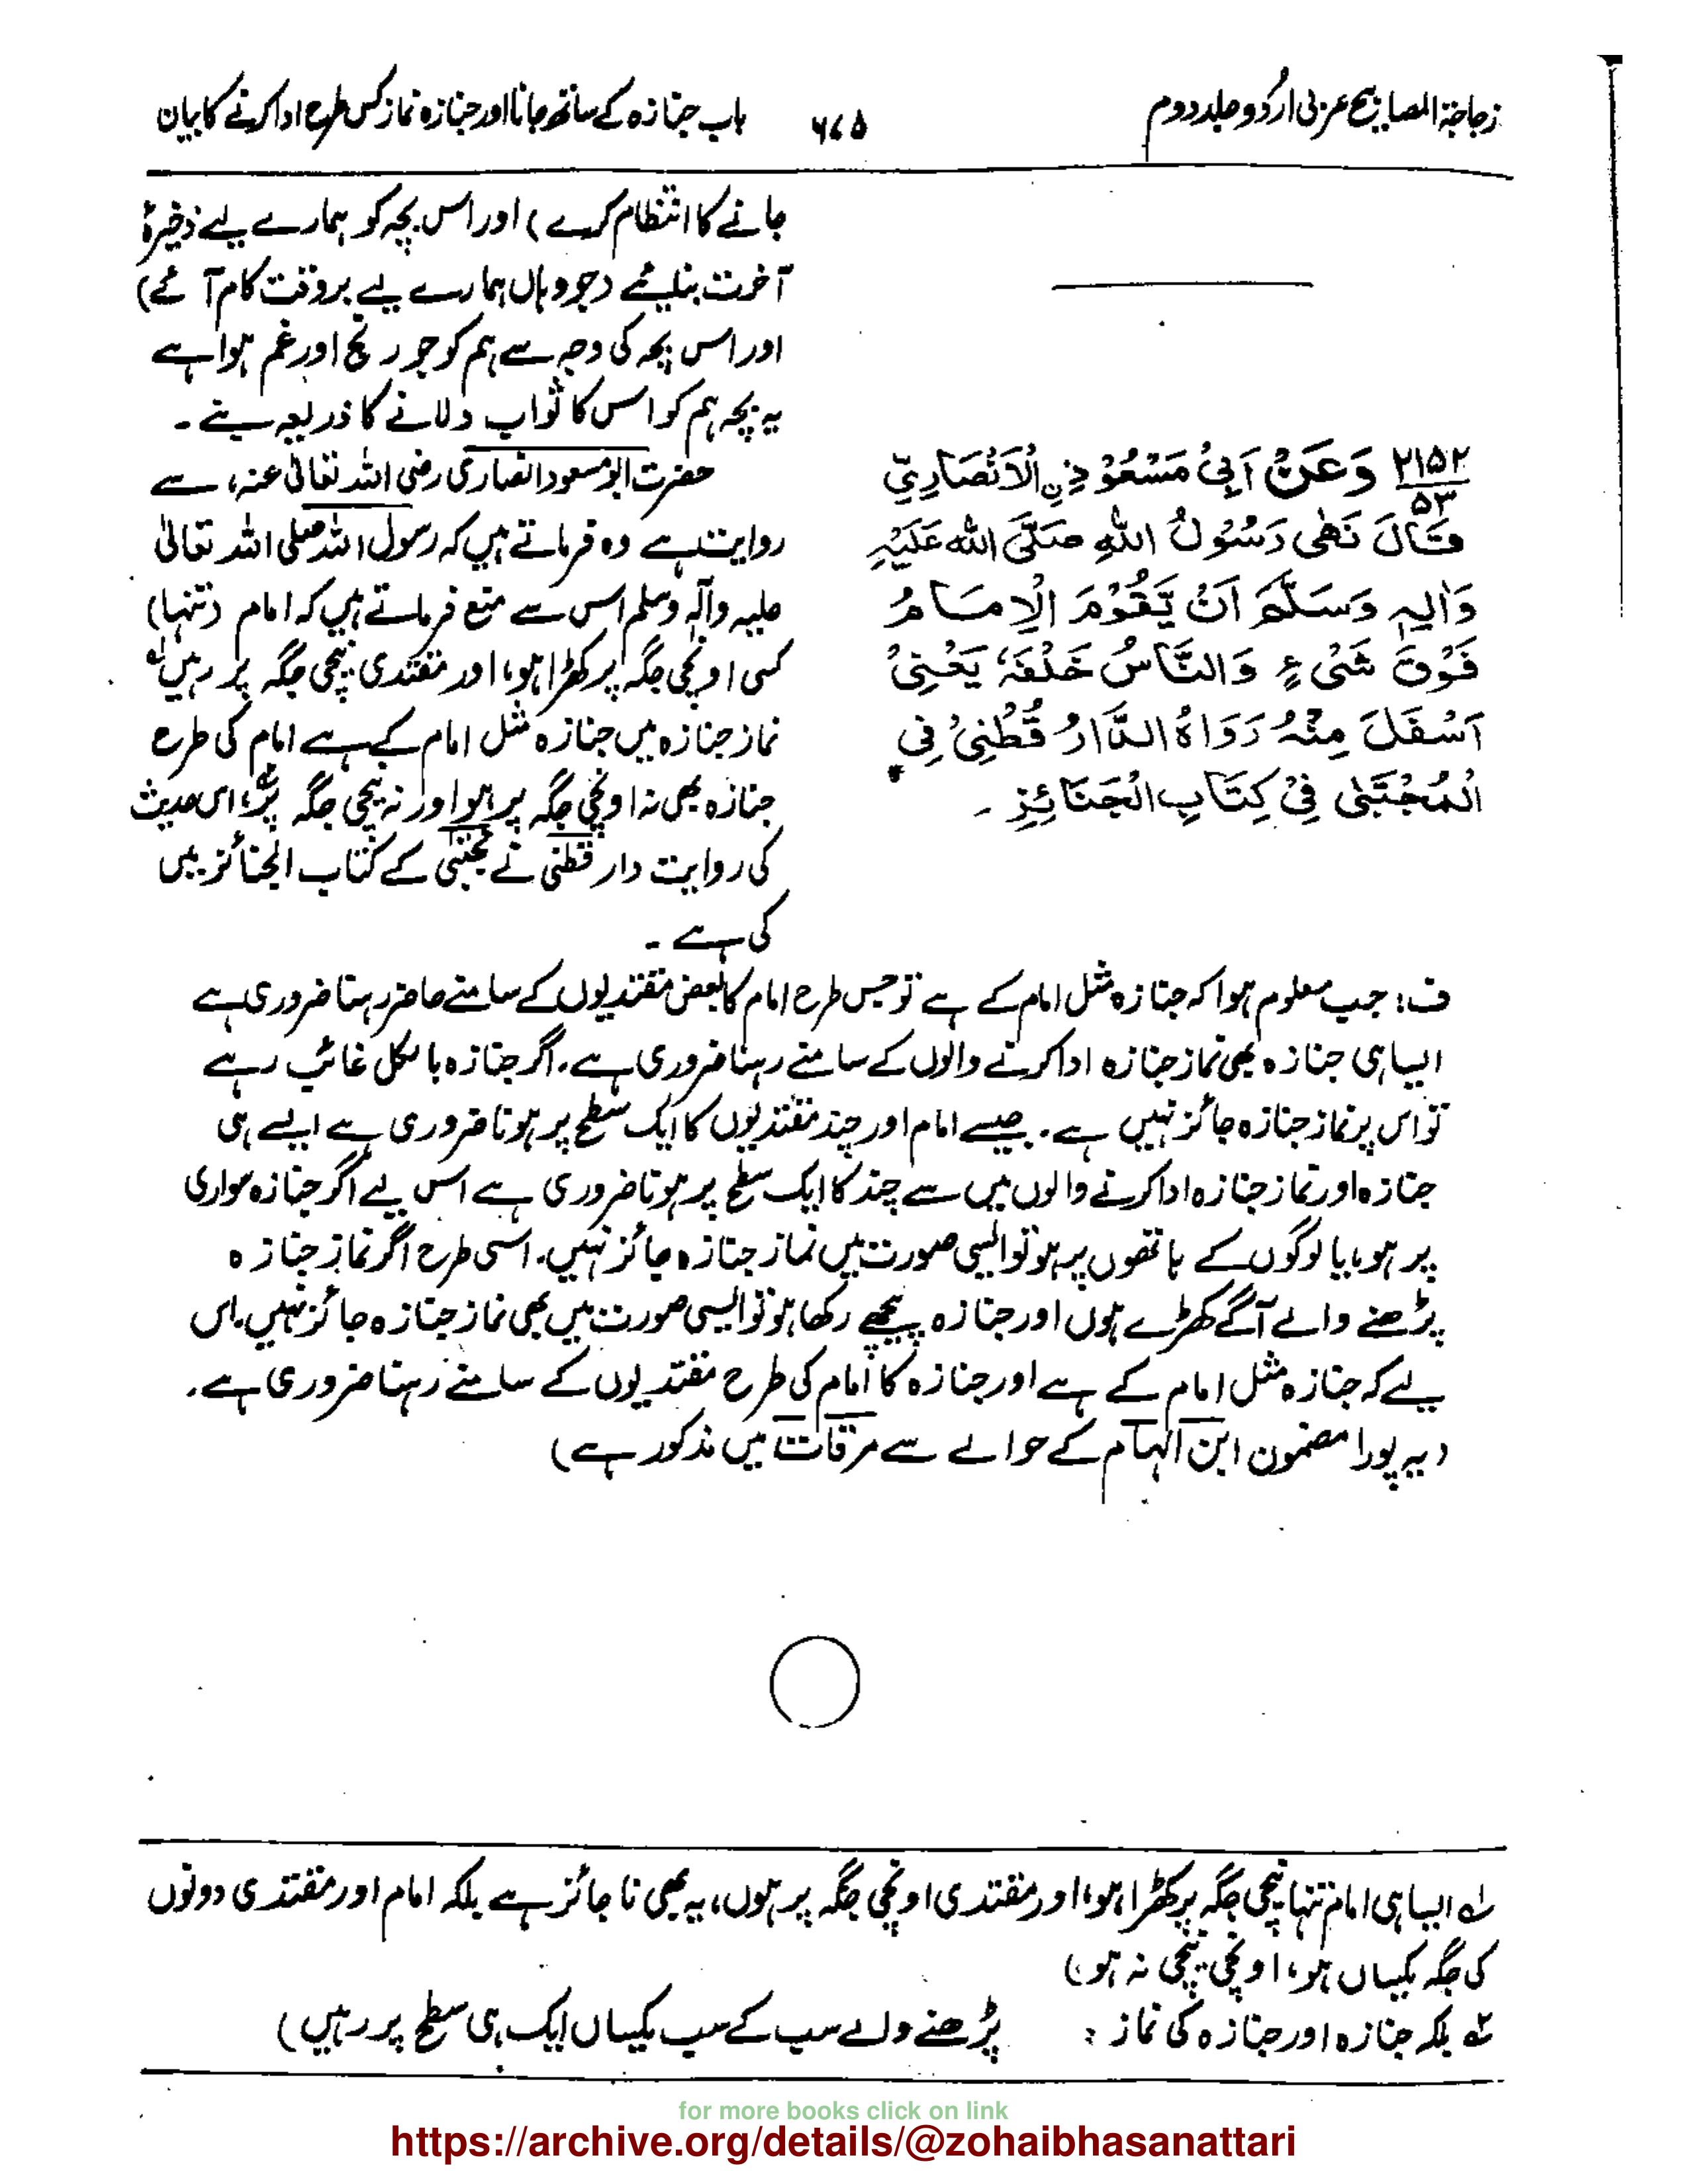 زجاجۃ المصابیح عربی اُردو جلد دوم
۶۷۵
باب جنازہ کے ساتھ جانا اور جنازہ نماز کس طرح ادا کرنے کا بیان
جانے کا انتظام کرے) اور اس بچہ کو ہمارے لیے ذخیرۂ
آخرت بنائے (جو وہاں ہمارے لیے بروقت کام آئے)
اور اس بچہ کی وجہ سے ہم کو جو رنج اور غم ہوا ہے
یہ بچہ ہم کو اس کا ثواب دلانے کا ذریعہ بنے ۔
۲۱۵۲
۵۳
وَعَنْ اَبِیْ مَسْعُوْدِنِ الْاَنْصَارِیِّ
قَالَ نَھٰی رَسُوْلُ اللّٰہِ صَلَّی اللّٰہُ عَلَیْہِ
وَاٰلِہٖ وَسَلَّمَ اَنْ یَّقُوْمَ الْاِمَامُ
فَوْقَ شَیْءٍ وَالنَّاسُ خَلْفَہٗ یَعْنِیْ
اَسْفَلَ مِنْہُ رَوَاہُ الدَّارُ قُطْنِیْ فِی
الْمُجْتَبٰی فِیْ کِتَابِ الْجَنَائِزِ ۔
حضرت ابو مسعود انصاری رضی اللہ تعالیٰ عنہ، سے
روایت ہے وہ فرماتے ہیں کہ رسول اللہ صلی اللہ تعالیٰ
علیہ وآلہٖ وسلم اس سے منع فرماتے ہیں کہ امام (تنہا)
کسی اونچی جگہ پر کھڑا ہو، اور مقتدی نیچی جگہ پر رہیں لہ
نماز جنازہ میں جنازہ مثل امام کے ہے امام کی طرح
جنازہ بھی نہ اونچی جگہ پر ہو اور نہ نیچی جگہ پر، ۲ اس حدیث
کی روایت دار قطنی نے مجتبیٰ کے کتاب الجنائز میں
کی ہے ۔
ف: جب معلوم ہوا کہ جنازہ مثل امام کے ہے تو جس طرح امام کا بعض مقتدیوں کے سامنے حاضر رہنا ضروری ہے
ایسا ہی جنازہ بھی نماز جنازہ ادا کرنے والوں کے سامنے رہنا ضروری ہے، اگر جنازہ بالکل غائب رہے
تو اس پر نماز جنازہ جائز نہیں ہے۔ جیسے امام اور چند مقتدیوں کا ایک سطح پر ہونا ضروری ہے ایسے ہی
جنازہ اور نماز جنازہ ادا کرنے والوں میں سے چند کا ایک سطح پر ہونا ضروری ہے اس لیے اگر جنازہ سواری
پر ہو، یا لوگوں کے ہاتھوں پر ہو تو ایسی صورت میں نماز جنازہ جائز نہیں، اسی طرح اگر نماز جنازہ
پڑھنے والے آگے کھڑے ہوں اور جنازہ پیچھے رکھا ہو تو ایسی صورت میں بھی نماز جنازہ جائز نہیں۔ اس
لیے کہ جنازہ مثل امام کے ہے اور جنازہ کا امام کی طرح مقتدیوں کے سامنے رہنا ضروری ہے۔
(یہ پورا مضمون ابن الہمام کے حوالے سے مرقات میں مذکور ہے)
لہ ایسا ہی امام تنہا نیچی جگہ پر کھڑا ہو، اور مقتدی اونچی جگہ پر ہوں، یہ بھی ناجائز ہے بلکہ امام اور مقتدی دونوں
کی جگہ یکساں ہو، اونچی نیچی نہ ہو،)
۲ بلکہ جنازہ اور جنازہ کی نماز : پڑھنے والے سب کے سب یکساں ایک ہی سطح پر رہیں)
for more books click on link
https://archive.org/details/@zohaibhasanattari